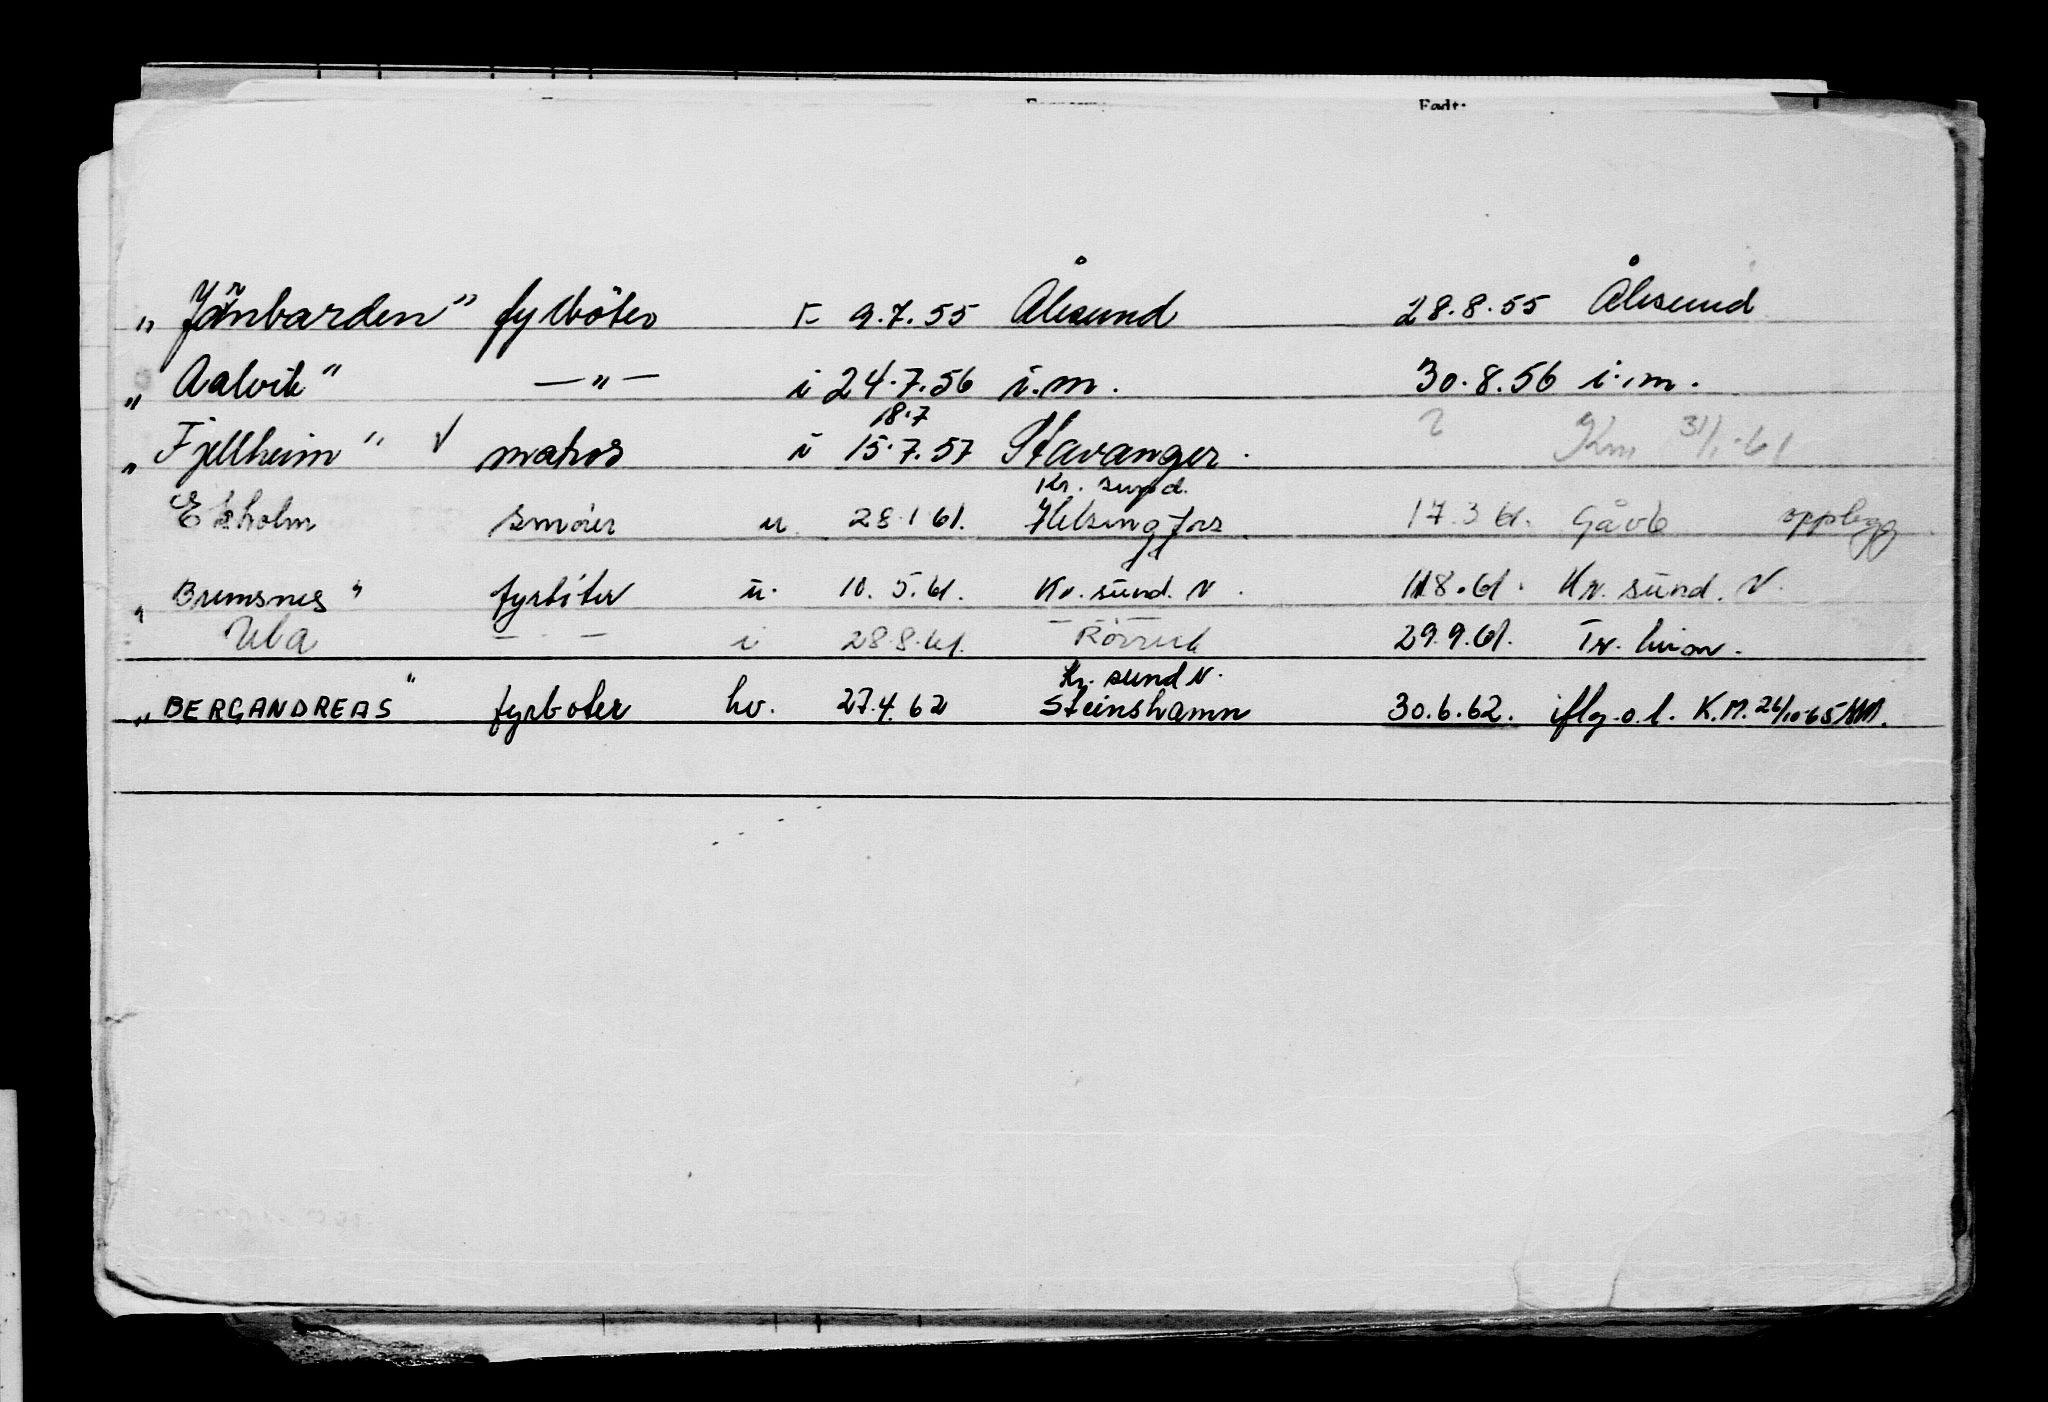 Født:
„Jönbarden" fyrböter F 9.7.55 Ålesund 28.8.55 Ålesund
„Aalvik" —„— i 24.7.56 i.m. 30.8.56 i.m.
18.7
„Fjellheim" √ matros i 15.7.57 Stavanger. ? Km 31/1-61
Kr. sund.
Ekholm smører u 28.1.61. Helsingfors 17.3.61. Gävle opplegg
„Bremsnes" fyrböter u. 10.5.61. Kr. sund. N. 11.8.61. Kr. sund. N.
Ula — — i 28.8.61. Rörvik 29.9.61. Tr. heim.
Kr. sund N.
„BERGANDREAS" fyrbøter hv. 27.4.62 Steinshamn 30.6.62. iflg. o.l. K.M. 26/10-65